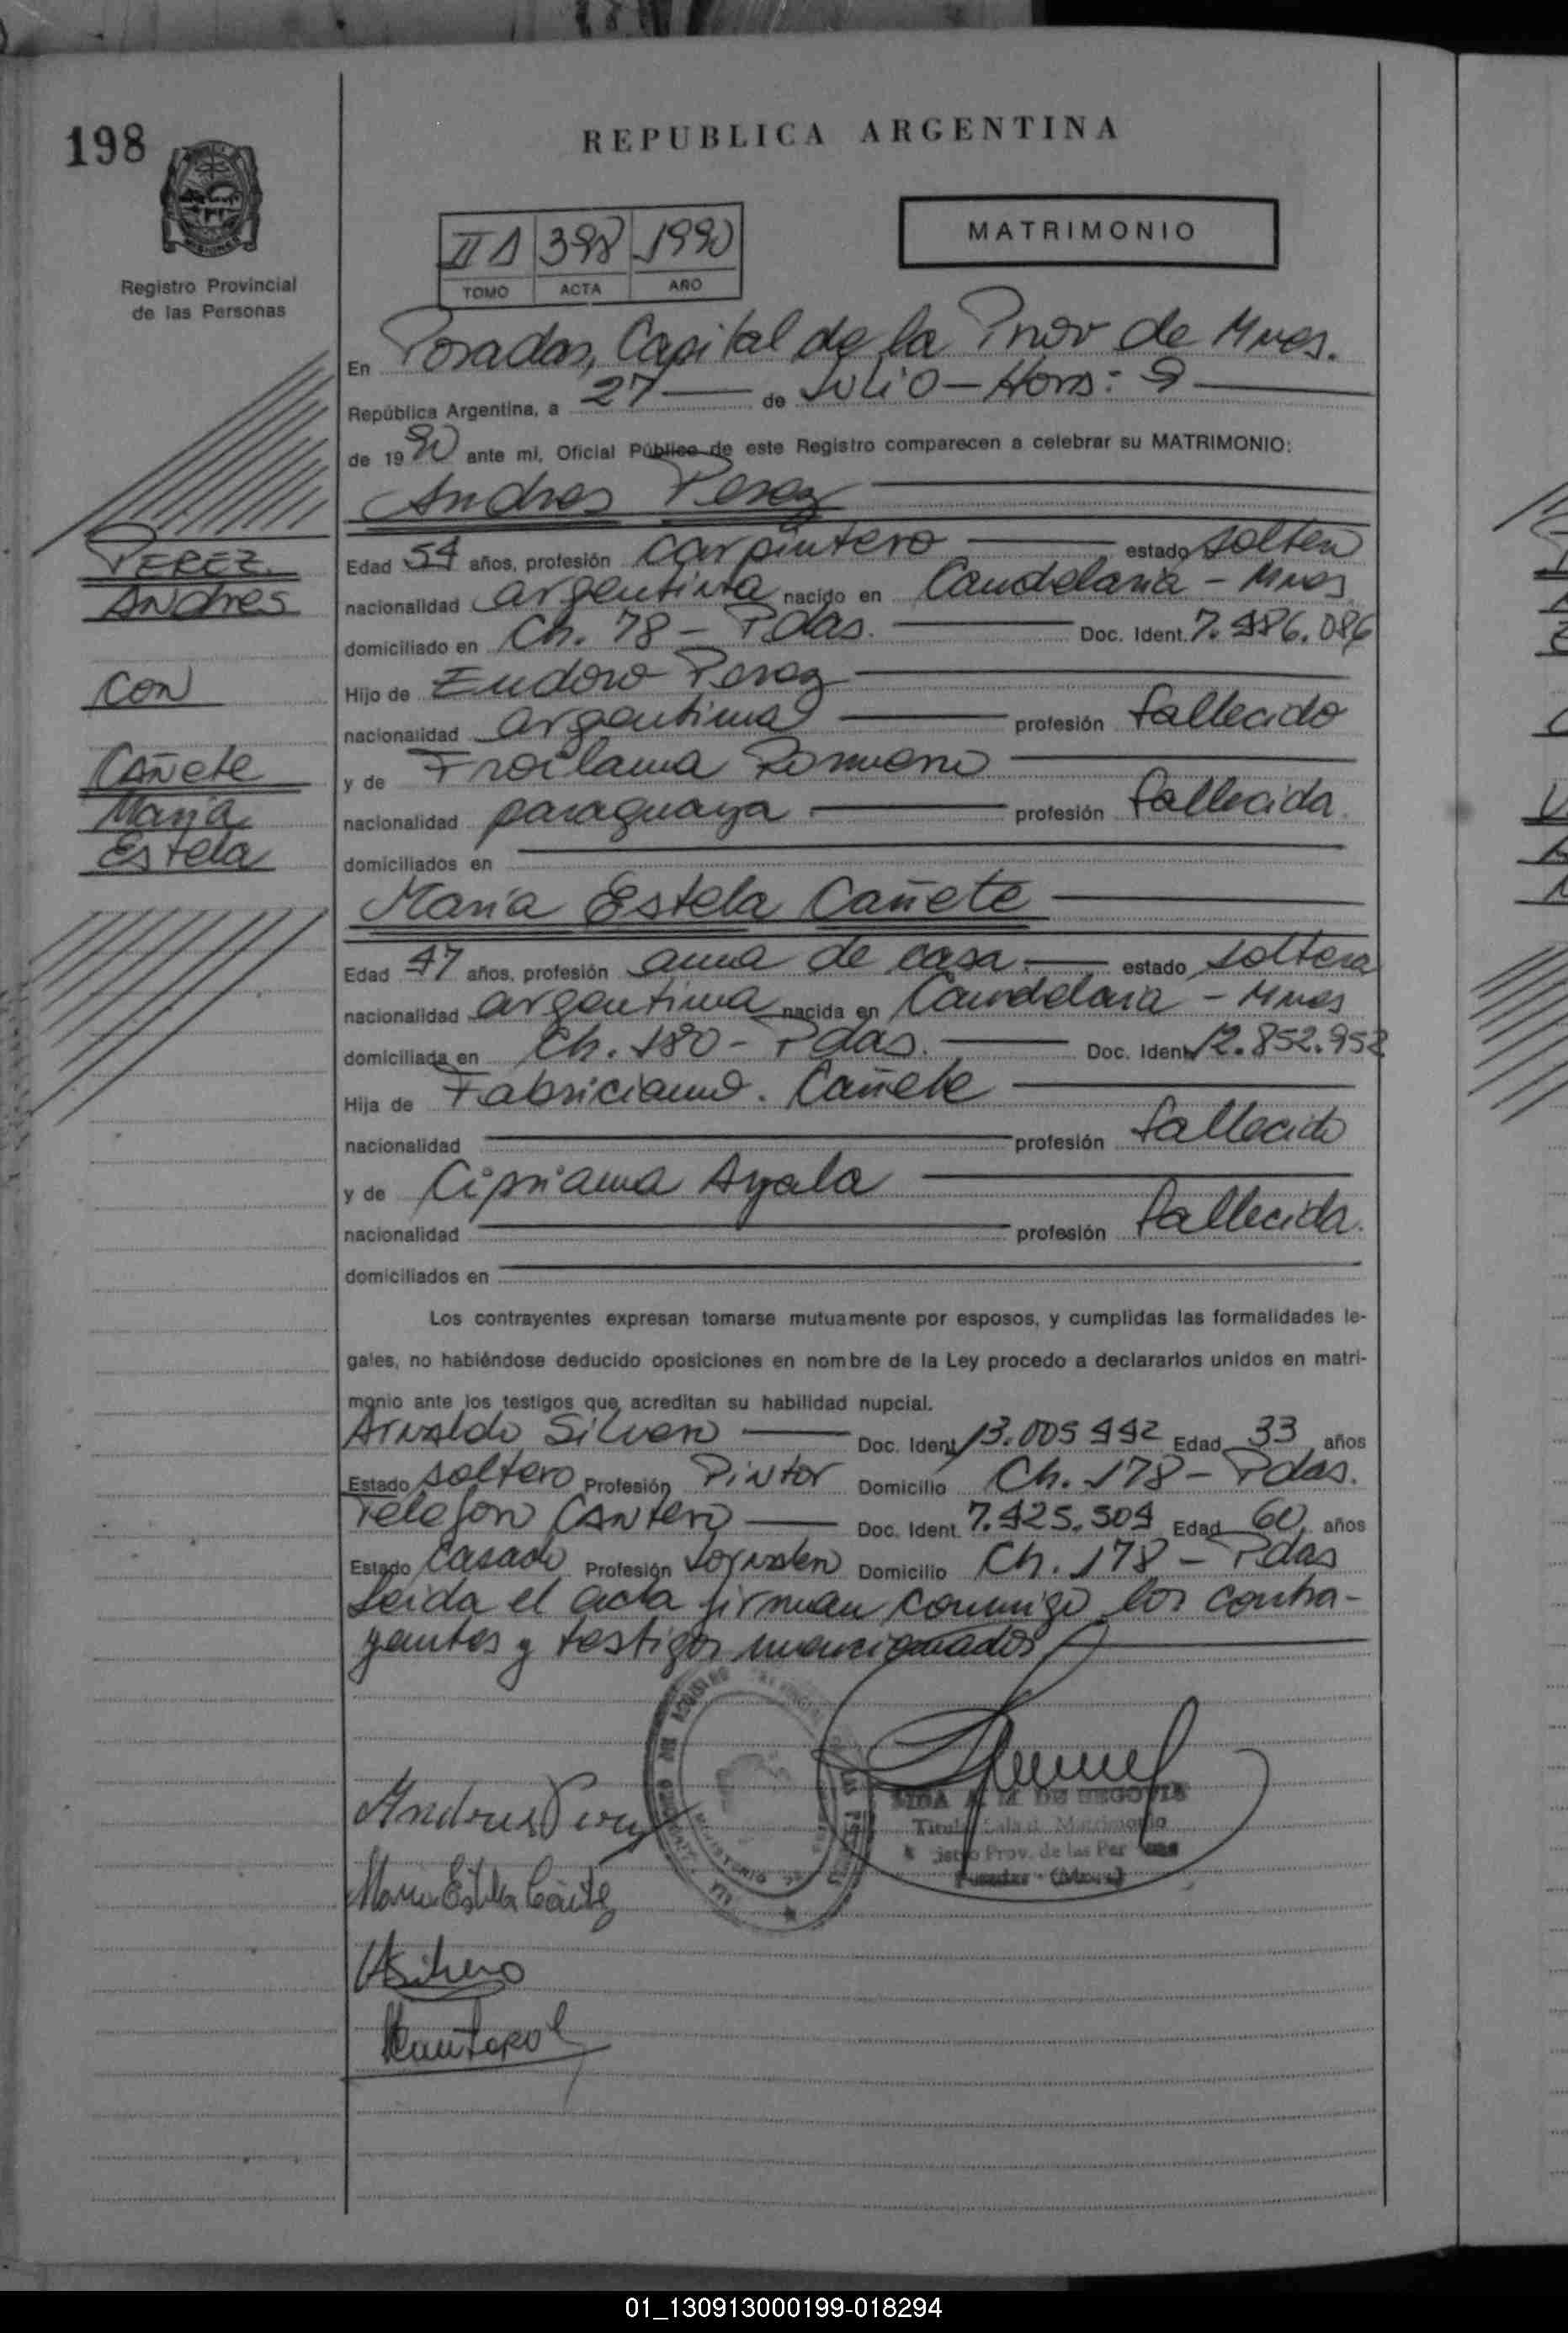 198
REPUBLICA ARGENTINA
MATRIMONIO
II A 398 1990
TOMO ACTA AÑO
Registro Provincial
de las Personas
En Posadas, Capital de la Prov de Mnes.
República Argentina, a 27 de Julio - Hora: 9
de 1990 ante mi, Oficial Público de este Registro comparecen a celebrar su MATRIMONIO:
Andres Perez
PEREZ
Andres
con
Cañete
Maria
Estela
Edad 54 años, profesión carpintero estado soltero
nacionalidad argentina nacido en Candelaria - Mnes
domiciliado en Ch. 78 - Pdas. Doc. Ident. 7.486.086
Hijo de Eudoro Perez
nacionalidad argentina profesión fallecido
y de Froilana Romero
nacionalidad paraguaya profesión fallecida
domiciliados en
Maria Estela Cañete
Edad 47 años, profesión ama de casa. estado soltera
nacionalidad argentina nacida en Candelaria - Mnes
domiciliada en Ch. 180 - Pdas. Doc. Ident. 12.852.952
Hija de Fabriciano. Cañete
nacionalidad profesión fallecido
y de Cipriana Ayala
nacionalidad profesión fallecida.
domiciliados en
Los contrayentes expresan tomarse mutuamente por esposos, y cumplidas las formalidades le-
gales, no habiéndose deducido oposiciones en nombre de la Ley procedo a declararlos unidos en matri-
monio ante los testigos que acreditan su habilidad nupcial.
Arnaldo Silvero Doc. Ident. 13.005.442 Edad 33 años
Estado soltero Profesión Pintor Domicilio Ch. 178 - Pdas.
Telesforo Cantero Doc. Ident. 7.425.504 Edad 60 años
Estado Casado Profesión Jornalero Domicilio Ch. 178 - Pdas
Leida el acta firman conmigo los contra-
yentes y testigos mencionados
Andres Perez
Maria Estela Cañete
A. M. DE SEGOVIA
Titular Sala d. Matrimonio
Prov. de las Personas
Posadas - (Mnes.)
ASilvero
Canterol
01_130913000199-018294